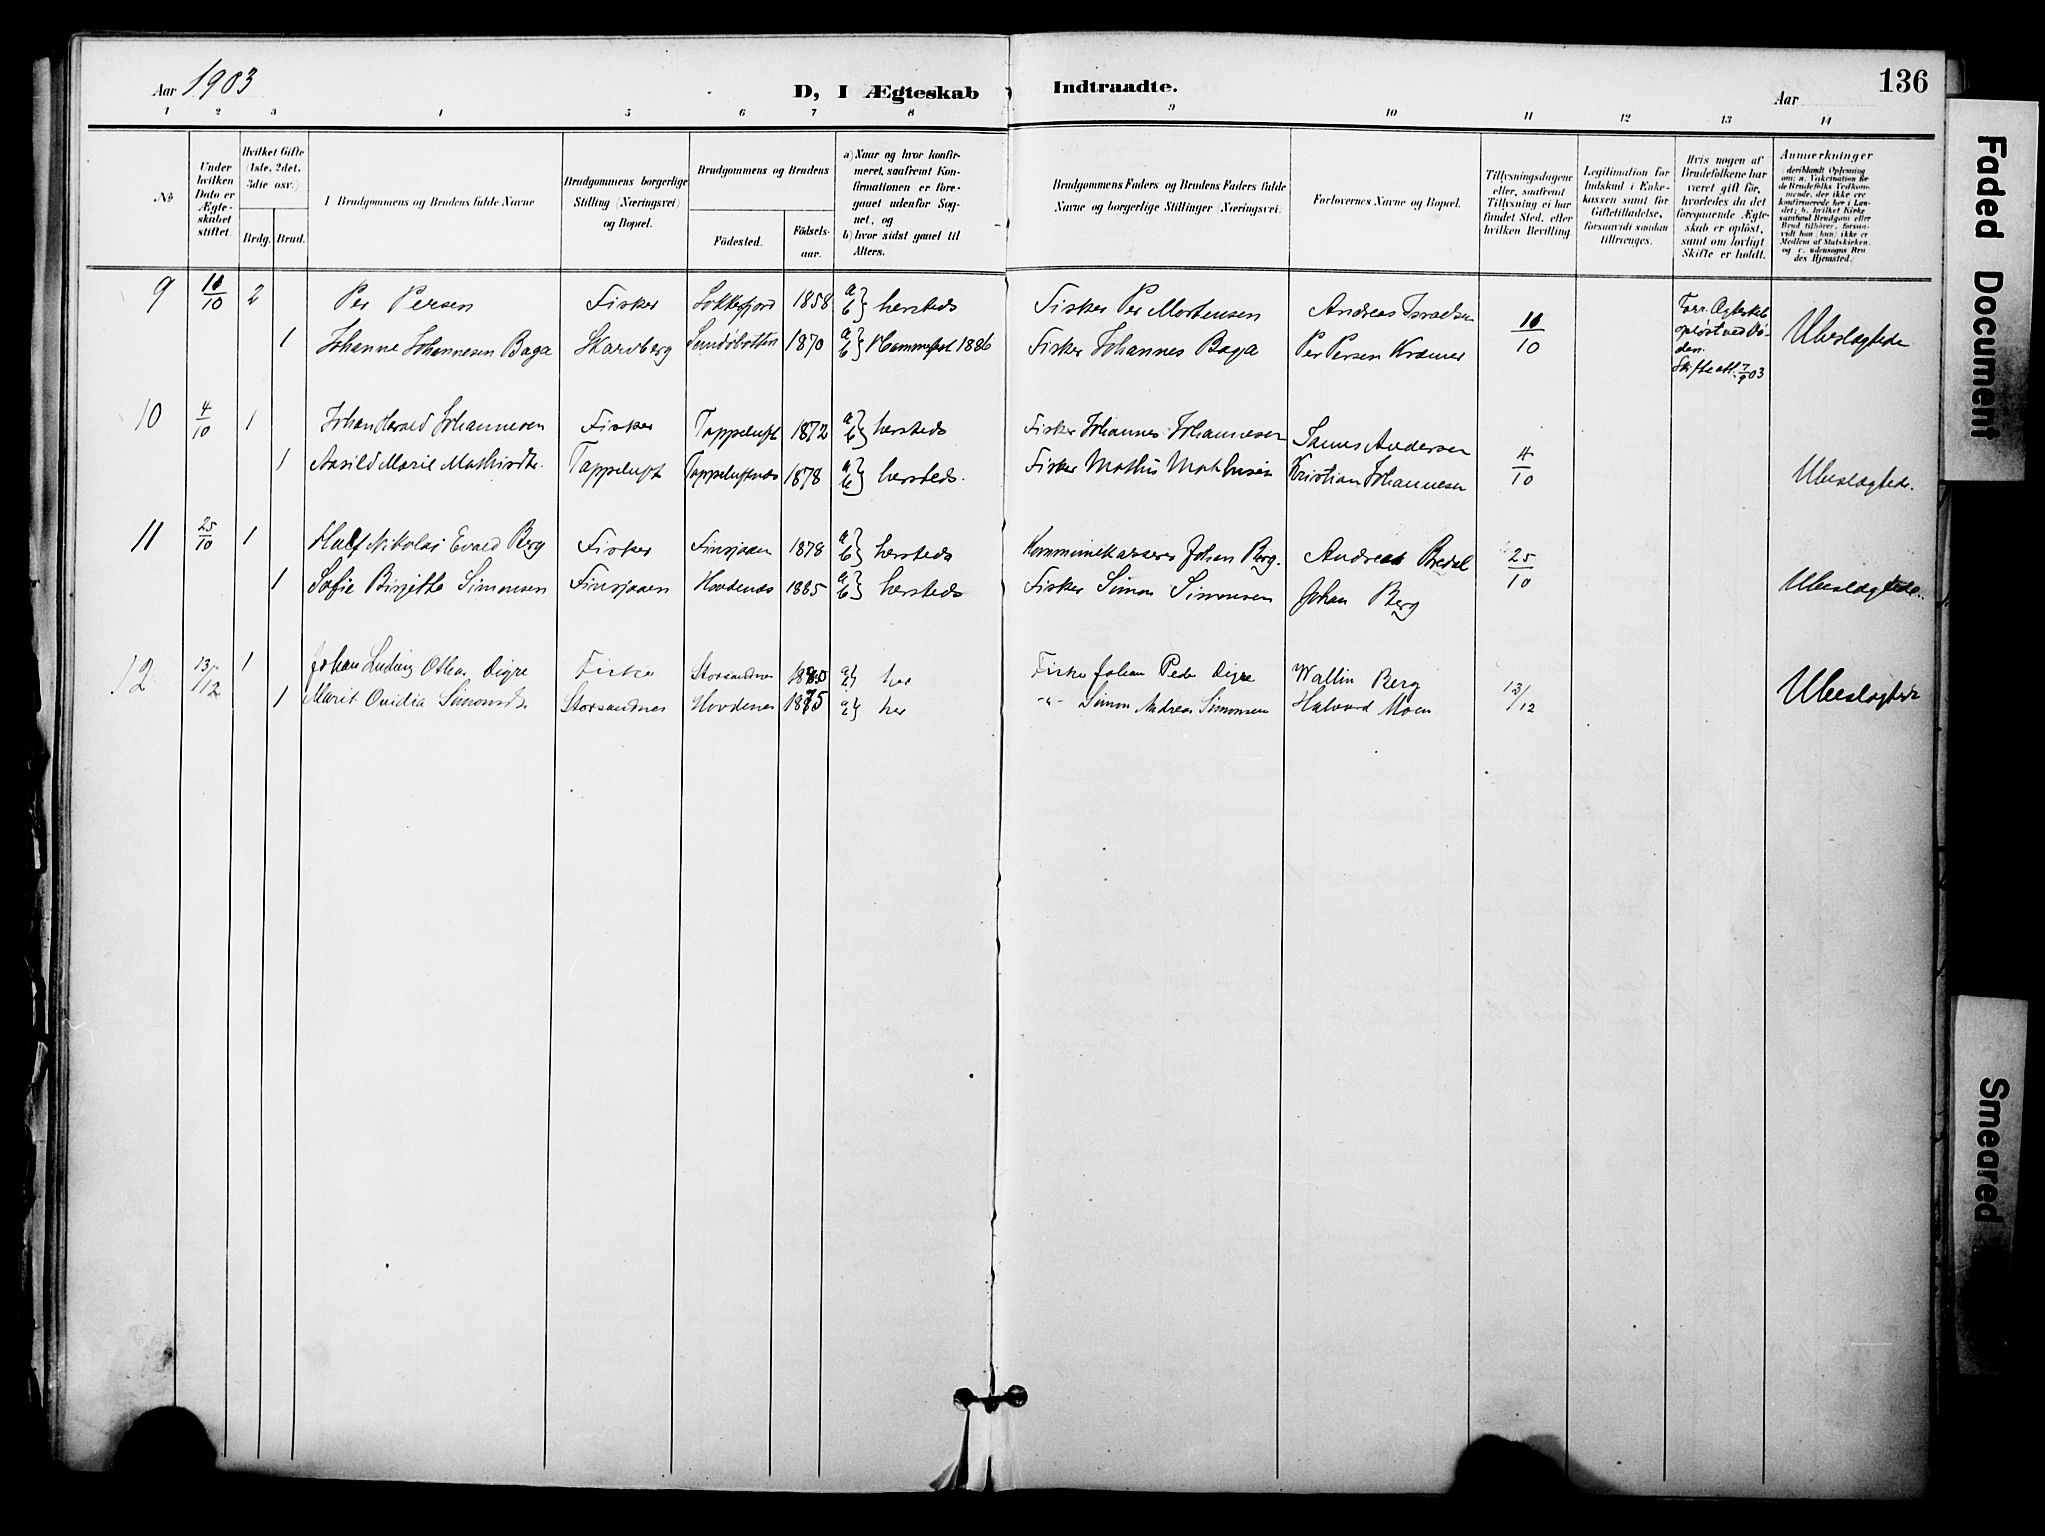 Aar 1903
D, I Ægteskab Indtraadte.
Aar
136
1 2 3 4 5 6 7 8 9 10 11 12 13 14
No
Under hvilken Dato er Ægteskabet stiftet.
Hvilket Gifte (1ste, 2det, 3die osv.)
Brdg. Brud.
I Brudgommens og Brudens fulde Navne
Brudgommens borgerlige Stilling (Næringsvei) og Bopæl.
Brudgommens og Brudens
Födested.
Födselsaar.
a) Naar og hvor konfirmeret, saafremt Konfirmationen er foregaaet udenfor Sognet, og
b) hvor sidst gaaet til Alters.
Brudgommens Faders og Brudens Faders fulde Navne og borgerlige Stillinger (Næringsvei.
Forlovernes Navne og Bopæl.
Tillysningsdagene eller, saafremt Tillysning ei har fundet Sted, efter hvilken Bevilling.
Legitimation for Indskud i Enkekassen samt for Giftetilladelse, forsaavidt saadan tiltrænges.
Hvis nogen af Brudefolkene har været gift før, hvorledes da det foregaaende Ægteskab er opløst, samt om lovligt Skifte er holdt.
Anmærkninger
9 10/10 2 Per Persen Fisker Lokkefjord 1858 a b } hersteds Fisker Per Mortensen Andreas Israelsen 11/10
1 Johanne Johannesen Baga Skarvberg 1870 a b } Hammerfest 1886 Fisker Johannes Baga Per Persen Kræmer
Forr. Ægteskab
opløst ved Dø-
den.
Skifte att. 7/9 03
Ubeslægtede
10 4/10 1 Johan Harald Johannesen Fisker Tappeluft 1872 a b } hersteds Fisker Johannes Johannesen Samus Andersen 4/10
1 Aasild Marie Mathisdtr. Tappeluft Tappeluftnes 1878 a b } hersteds. Fisker Mathis Mathisen Kristian Johannesen Ubeslægtede.
11 25/10 1 Half Nikolai Evald Berg Fisker Finsjaaen 1878 a b } hersteds Kommunekasserer Johan Berg. Andreas Bredal 25/10
1 Sofie Birgitte Simonsen Finsjaaen Hovdenes 1885 a b } hersteds Fisker Simon Simonsen Johan Berg Ubeslægtede.
12 13/12 1 Johan Ludvig Othar Digre Fisker Storsandnes a} her Fisker Johan Peder Digre Wallin Berg 13/12
1 Marit Ovidia Simonsdtr Storsandnes Hovdenes 1875 a} her -"- Simon Andreas Simonsen Halvard Moen Ubeslægtede
Faded Document
Smeared